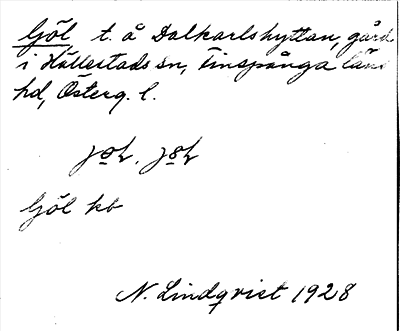 Göl t. å Dalkarlshyttan, gård
i Hällestads sn, Finspånga läns
hd, Österg. l.
Göl kb
N. Lindqvist 1928